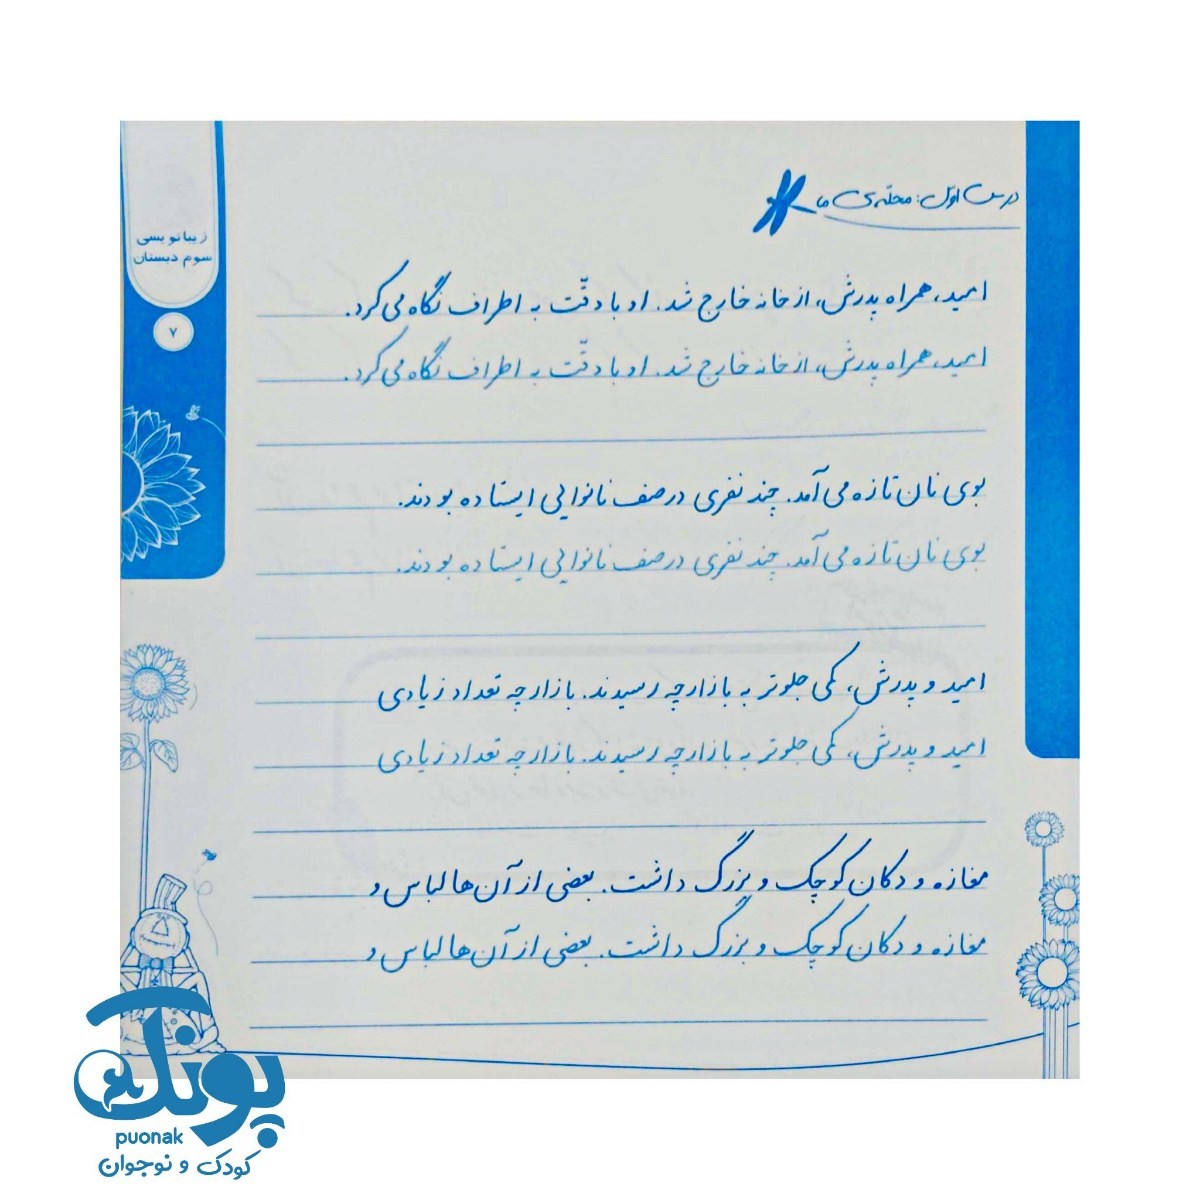 درس اوّل: محلّه‌ی ما
زیبا نویسی
سوم دبستان
۷
امید، همراه پدرش، از خانه خارج شد. او با دقّت به اطراف نگاه می‌کرد.
امید، همراه پدرش، از خانه خارج شد. او با دقّت به اطراف نگاه می‌کرد.
بوی نان تازه می‌آمد. چند نفری در صف نانوایی ایستاده بودند.
بوی نان تازه می‌آمد. چند نفری در صف نانوایی ایستاده بودند.
امید و پدرش، کمی جلوتر به بازارچه رسیدند. بازارچه تعداد زیادی
امید و پدرش، کمی جلوتر به بازارچه رسیدند. بازارچه تعداد زیادی
مغازه و دکان کوچک و بزرگ داشت. بعضی از آن‌ها لباس و
مغازه و دکان کوچک و بزرگ داشت. بعضی از آن‌ها لباس و
پونک
puonak
کودک و نوجوان